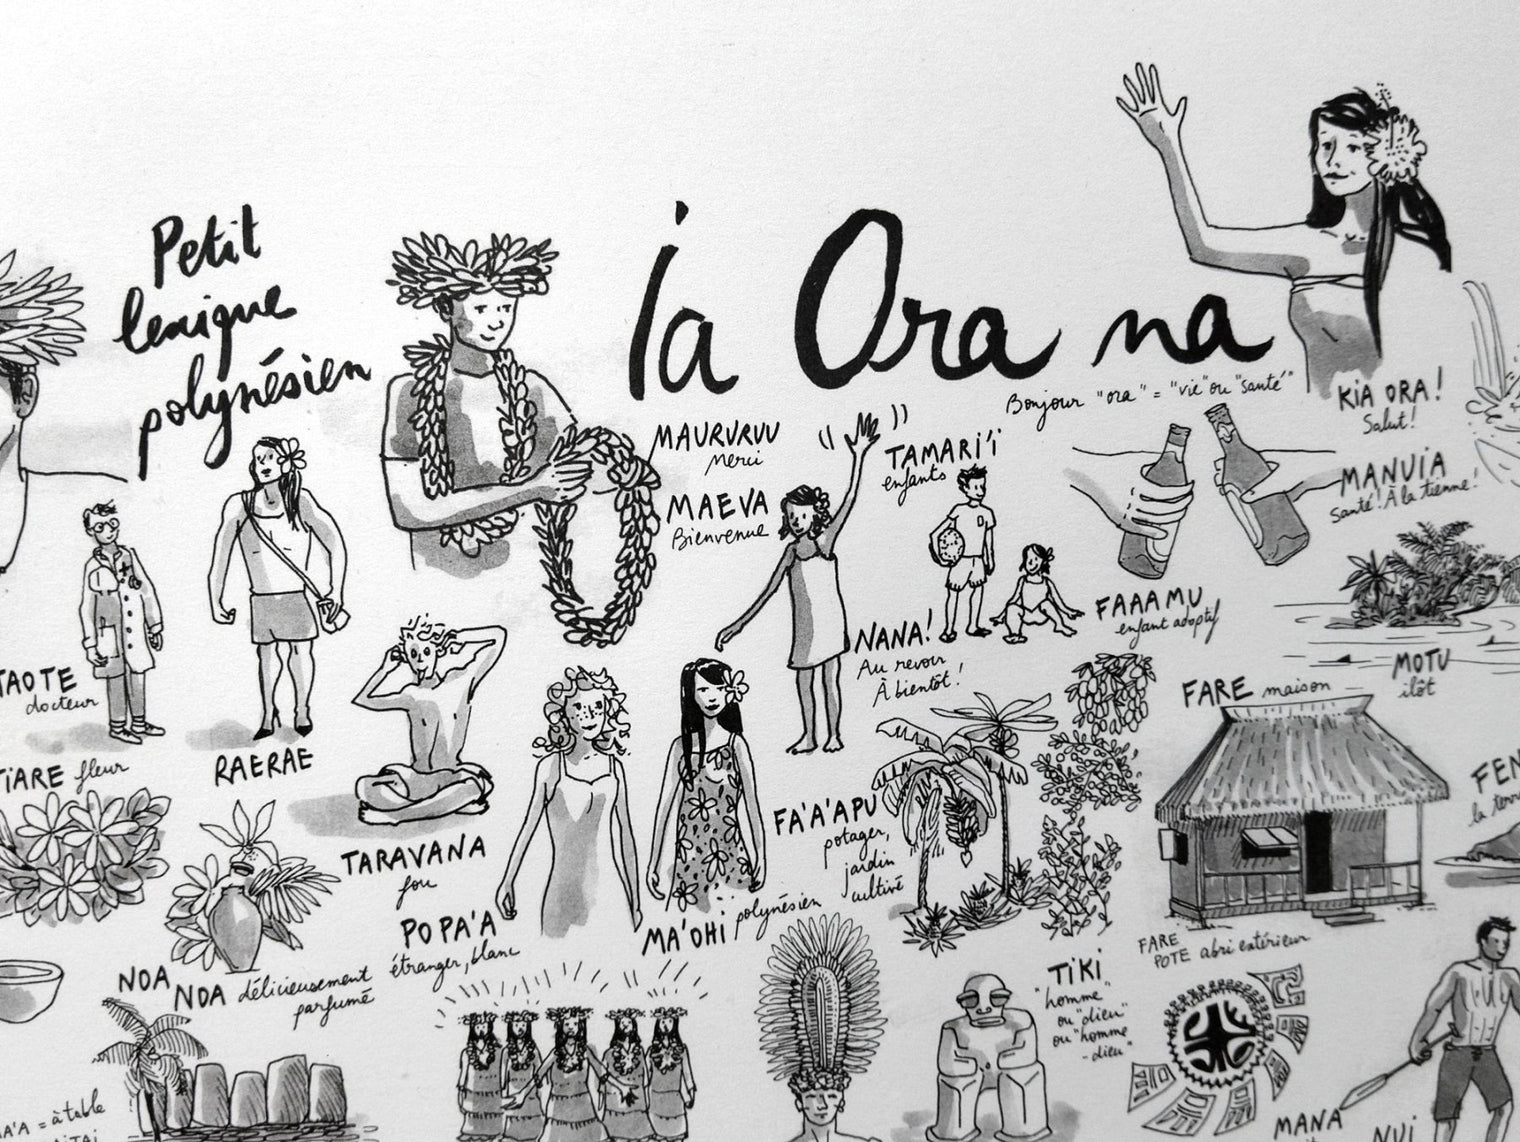 Petit
lexique
polynésien
ia Ora na
Bonjour "ora" = "vie" ou "santé"
KIA ORA!
Salut!
MAURURUU
Merci
MAEVA
Bienvenue
TAMARI'I
enfants
MANUIA
santé! À la tienne!
NANA!
Au revoir
À bientôt!
FAAAMU
enfant adoptif
MOTU
îlôt
TAOTE
docteur
RAERAE
FARE maison
TIARE fleur
TARAVANA
fou
FA'A'APU
potager,
jardin
cultivé
POPA'A
étranger, blanc
MA'OHI polynésien
FARE
POTE abri extérieur
NOA
NOA délicieusement
parfumé
TiKi
"homme"
ou "dieu"
ou "homme
-dieu"
MANA
= à table